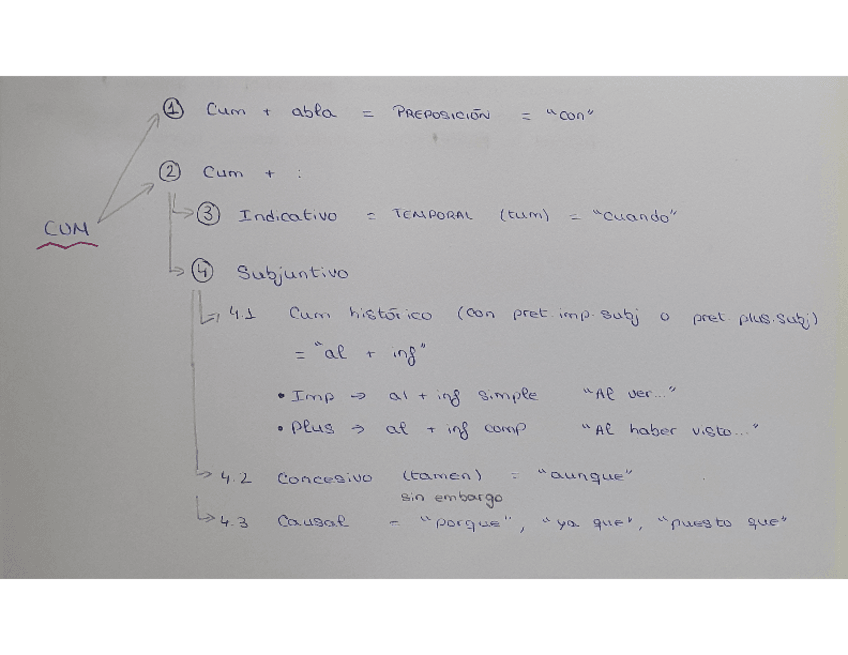 ① Cum + abla = PREPOSICIÓN = "con"
② Cum + :
CUM
③ Indicativo = TEMPORAL (tum) = "cuando"
④ Subjuntivo
4.1 Cum histórico (con pret. imp. subj o pret. plus. subj)
= "al + inf"
• Imp → al + inf simple "Al ver..."
• Plus → al + inf comp "Al haber visto..."
4.2 Concesivo (tamen) = "aunque"
sin embargo
4.3 Causal = "porque", "ya que", "puesto que"